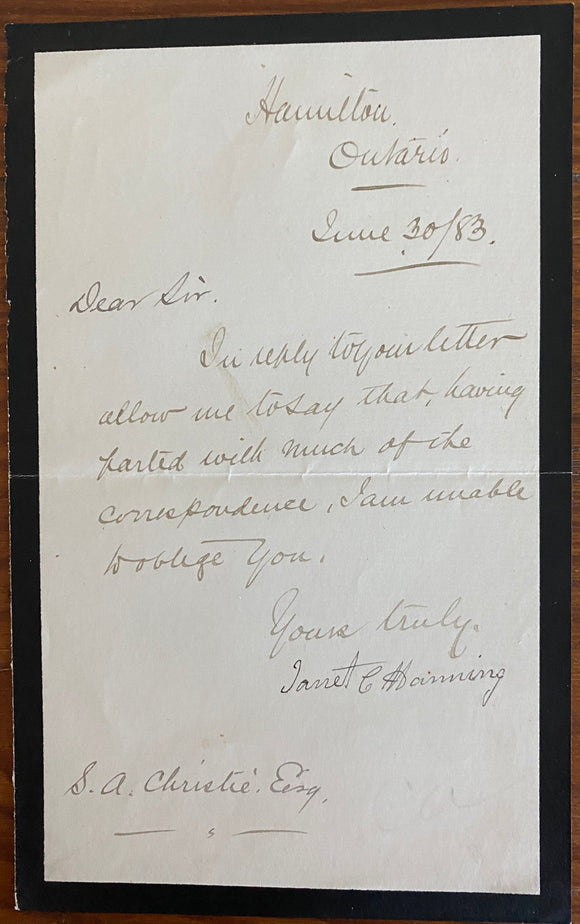 Hamilton.
Ontario.
June 30/83.
Dear Sir.
In reply to your letter
allow me to say that, having
parted with much of the
correspondence, I am unable
to oblige you.
Yours truly.
Janet C Hanning
S. A. Christie. Esq.